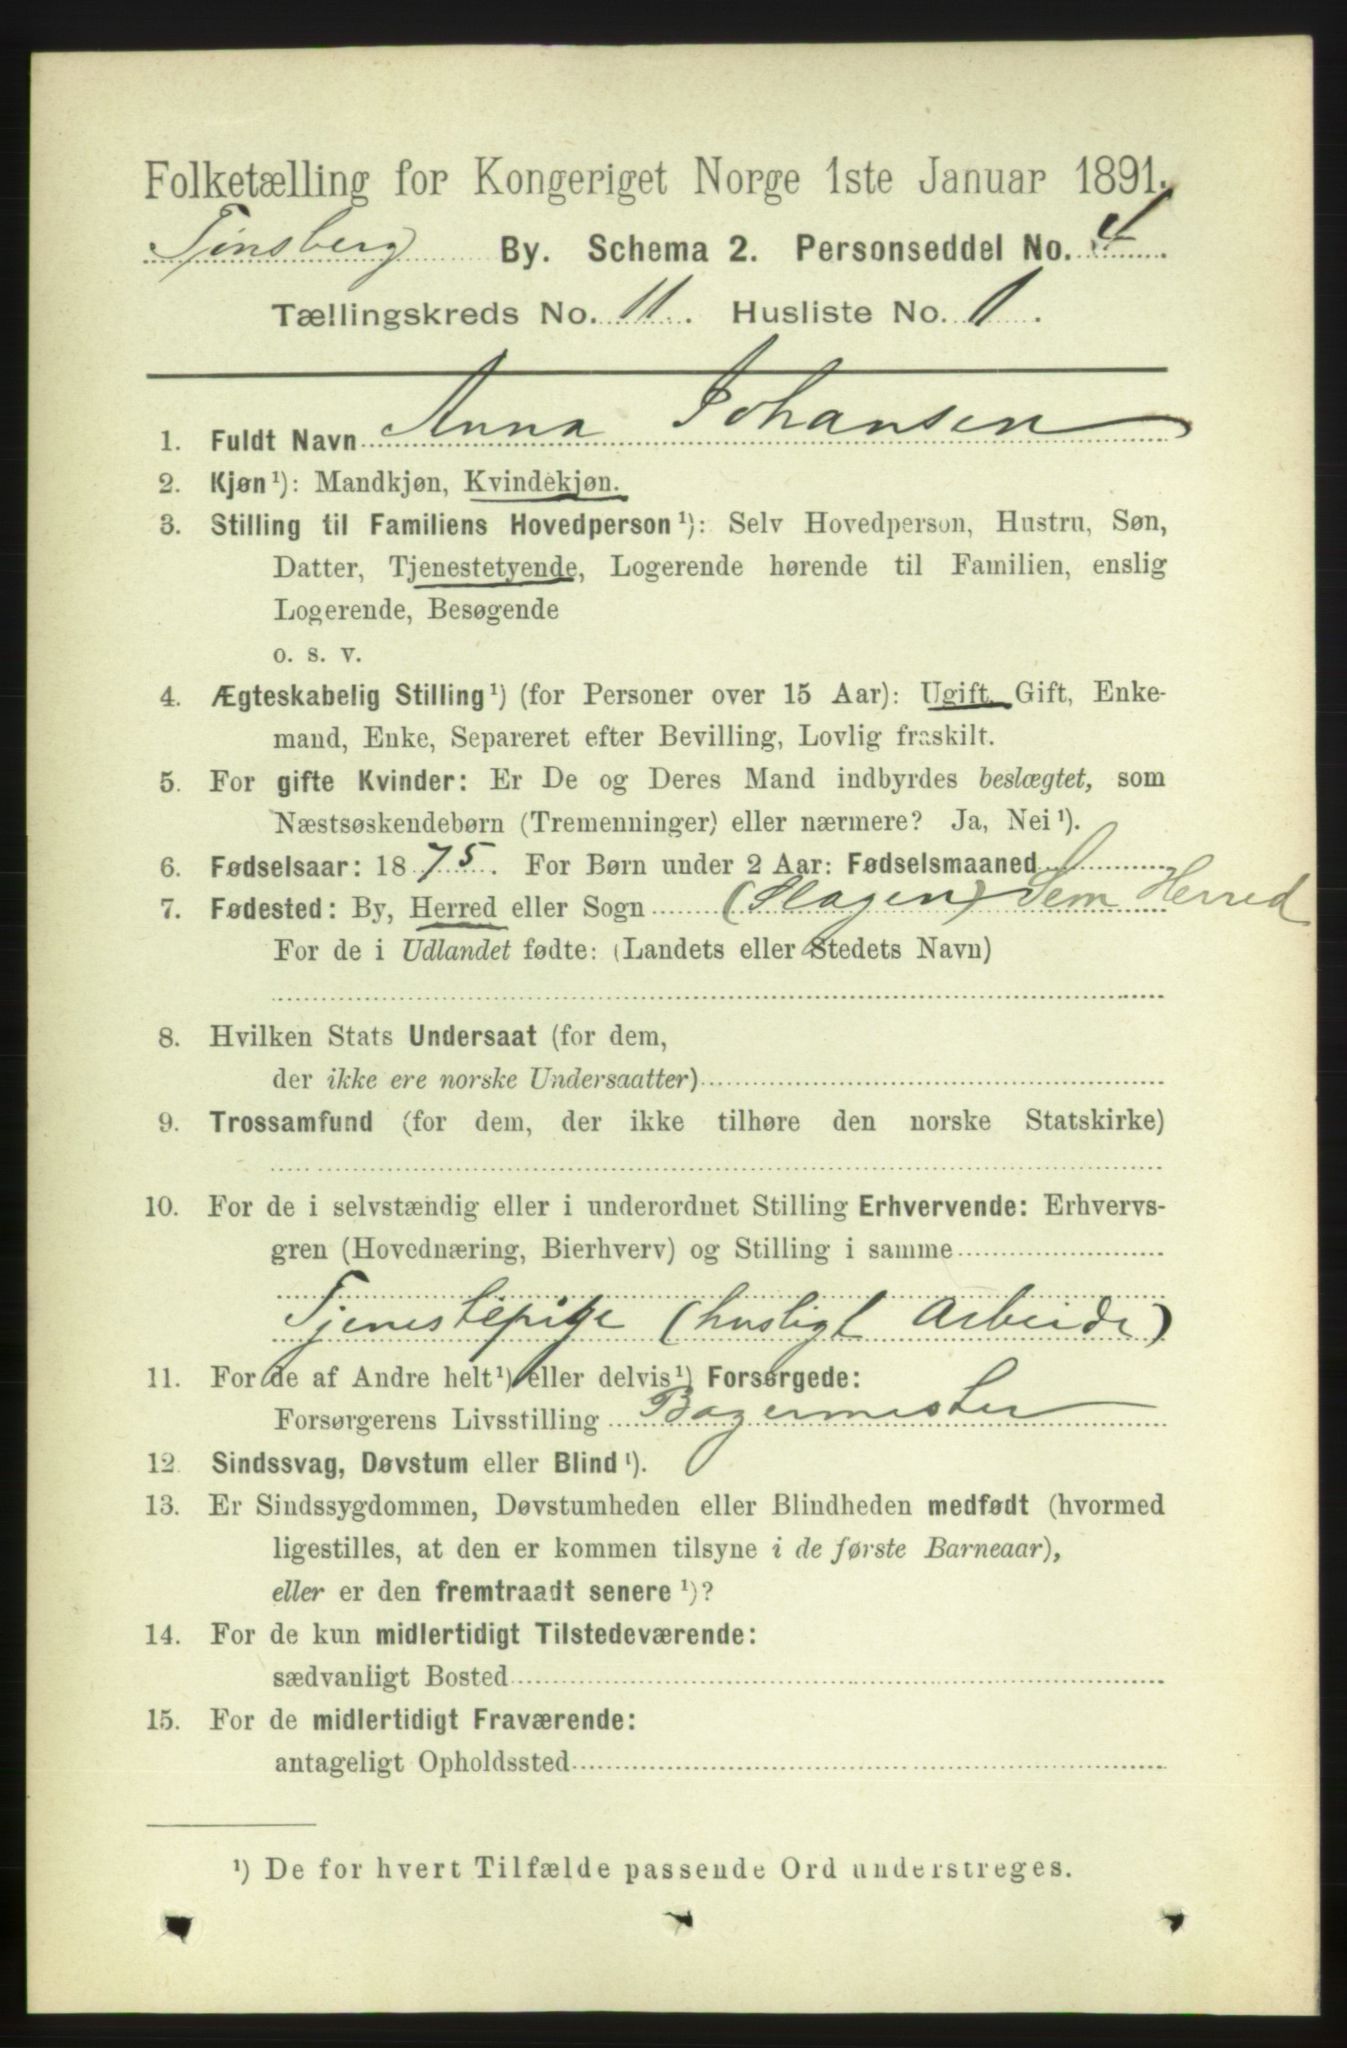 Folketælling for Kongeriget Norge 1ste Januar 1891.
Tønsberg By. Schema 2. Personseddel No. 4
Tællingskreds No. 11. Husliste No. 1.
1. Fuldt Navn Anna Johansen
2. Kjøn¹): Mandkjøn, Kvindekjøn.
3. Stilling til Familiens Hovedperson¹): Selv Hovedperson, Hustru, Søn,
Datter, Tjenestetyende, Logerende hørende til Familien, enslig
Logerende, Besøgende
o. s. v.
4. Ægteskabelig Stilling¹) (for Personer over 15 Aar): Ugift, Gift, Enke-
mand, Enke, Separeret efter Bevilling, Lovlig fraskilt.
5. For gifte Kvinder: Er De og Deres Mand indbyrdes beslægtet, som
Næstsøskendebørn (Tremenninger) eller nærmere? Ja, Nei¹).
6. Fødselsaar: 1875. For Børn under 2 Aar: Fødselsmaaned
7. Fødested: By, Herred eller Sogn (Slagen) Sem Herred
For de i Udlandet fødte: (Landets eller Stedets Navn)
8. Hvilken Stats Undersaat (for dem,
der ikke ere norske Undersaatter)
9. Trossamfund (for dem, der ikke tilhøre den norske Statskirke)
10. For de i selvstændig eller i underordnet Stilling Erhvervende: Erhvervs-
gren (Hovednæring, Bierhverv) og Stilling i samme
Tjenestepige (husligt Arbeide)
11. For de af Andre helt¹) eller delvis¹) Forsørgede:
Forsørgerens Livsstilling Bagermester
12. Sindssvag, Døvstum eller Blind¹).
13. Er Sindssygdommen, Døvstumheden eller Blindheden medfødt (hvormed
ligestilles, at den er kommen tilsyne i de første Barneaar),
eller er den fremtraadt senere¹)?
14. For de kun midlertidigt Tilstedeværende:
sædvanligt Bosted
15. For de midlertidigt Fraværende:
antageligt Opholdssted
¹) De for hvert Tilfælde passende Ord understreges.